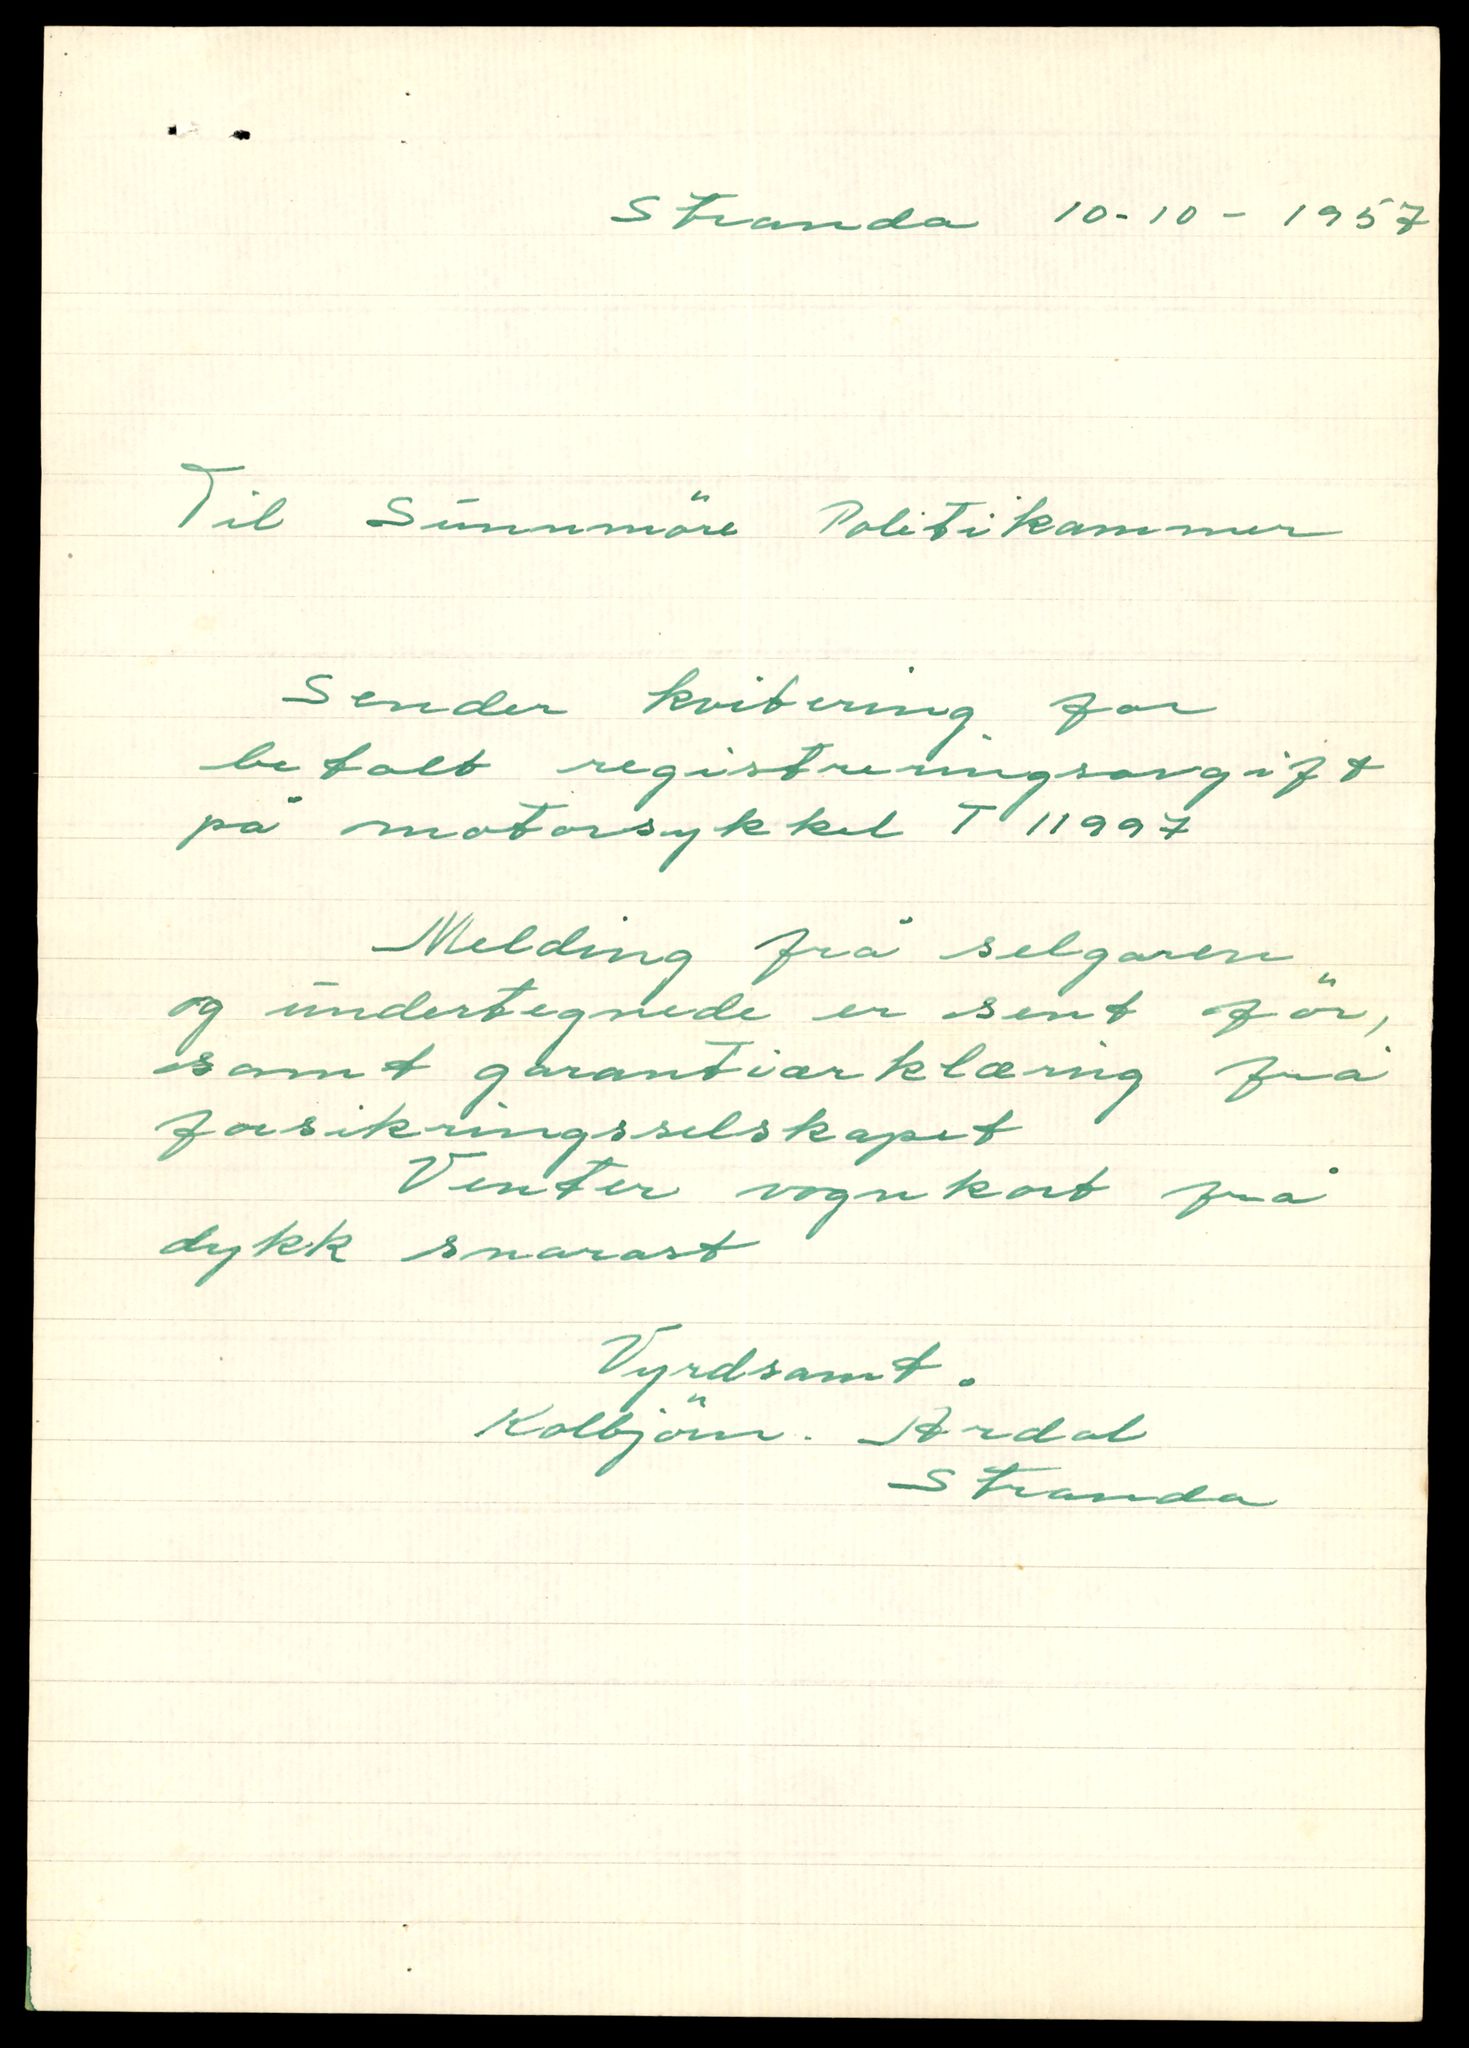 Stranda 10-10-1957
Til Sunnmöre Politikammer
Sender kvitering for
betalt registreringsavgift
på motorsykkel T 11997
Melding frå selgaren
og undertegnede er sent för,
samt garantiærklæring frå
forsikringsselskapet
Venter vognkort frå
dykk snarast
Vyrdsamt.
Kolbjörn. Årdal
Stranda